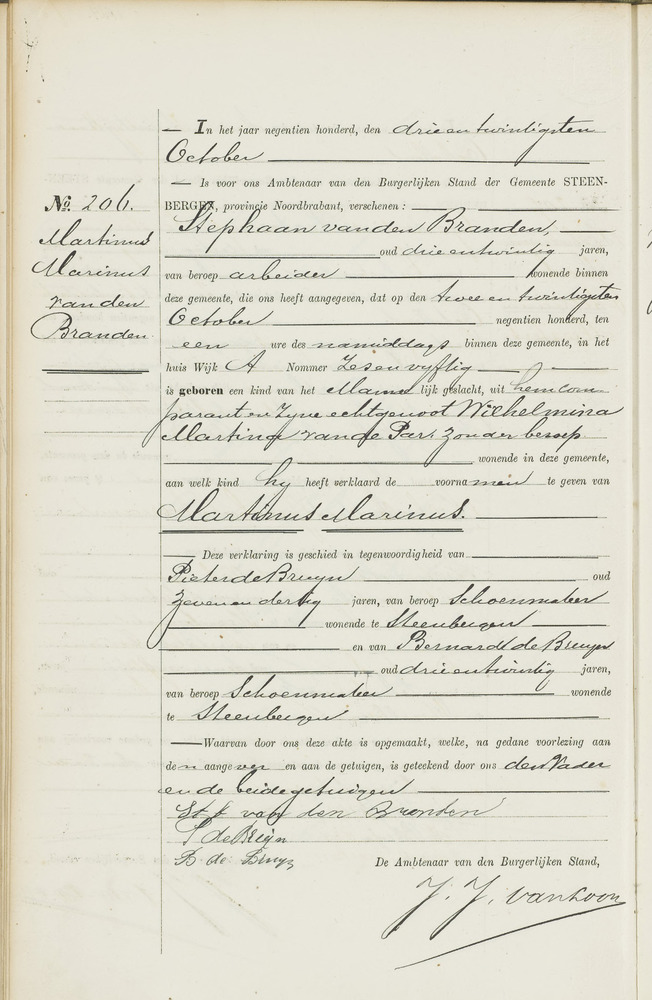 In het jaar negentien honderd, den drie en twintigsten
October
Is voor ons Ambtenaar van den Burgerlijken Stand der Gemeente STEEN-
BERGEN, provincie Noordbrabant, verschenen:
Stephaan van den Branden,
oud drie en twintig jaren,
van beroep arbeider wonende binnen
deze gemeente, die ons heeft aangegeven, dat op den twee en twintigsten
October negentien honderd, ten
een ure des namiddags binnen deze gemeente, in het
huis Wijk A Nommer Zes en vyftig
is geboren een kind van het Manne lijk geslacht, uit hem com
parant en Zyne echtgenoot Wilhelmina
Martina van de Par, Zonder beroep
wonende in deze gemeente,
aan welk kind hy heeft verklaard de voornamen te geven van
Martinus Marinus.
Deze verklaring is geschied in tegenwoordigheid van
Pieter de Bruyn oud
Zeven en dertig jaren, van beroep Schoenmaker
wonende te Steenbergen
en van Bernard de Bruyn
oud drie en twintig jaren,
van beroep Schoenmaker wonende
te Steenbergen
Waarvan door ons deze akte is opgemaakt, welke, na gedane voorlezing aan
den aangever en aan de getuigen, is geteekend door ons den Vader
en de beide getuigen
St. van den Branden
P de Bruijn
B. de Bruyn
De Ambtenaar van den Burgerlijken Stand,
J. J. van Loon
No. 206.
Martinus
Marinus
van den
Branden